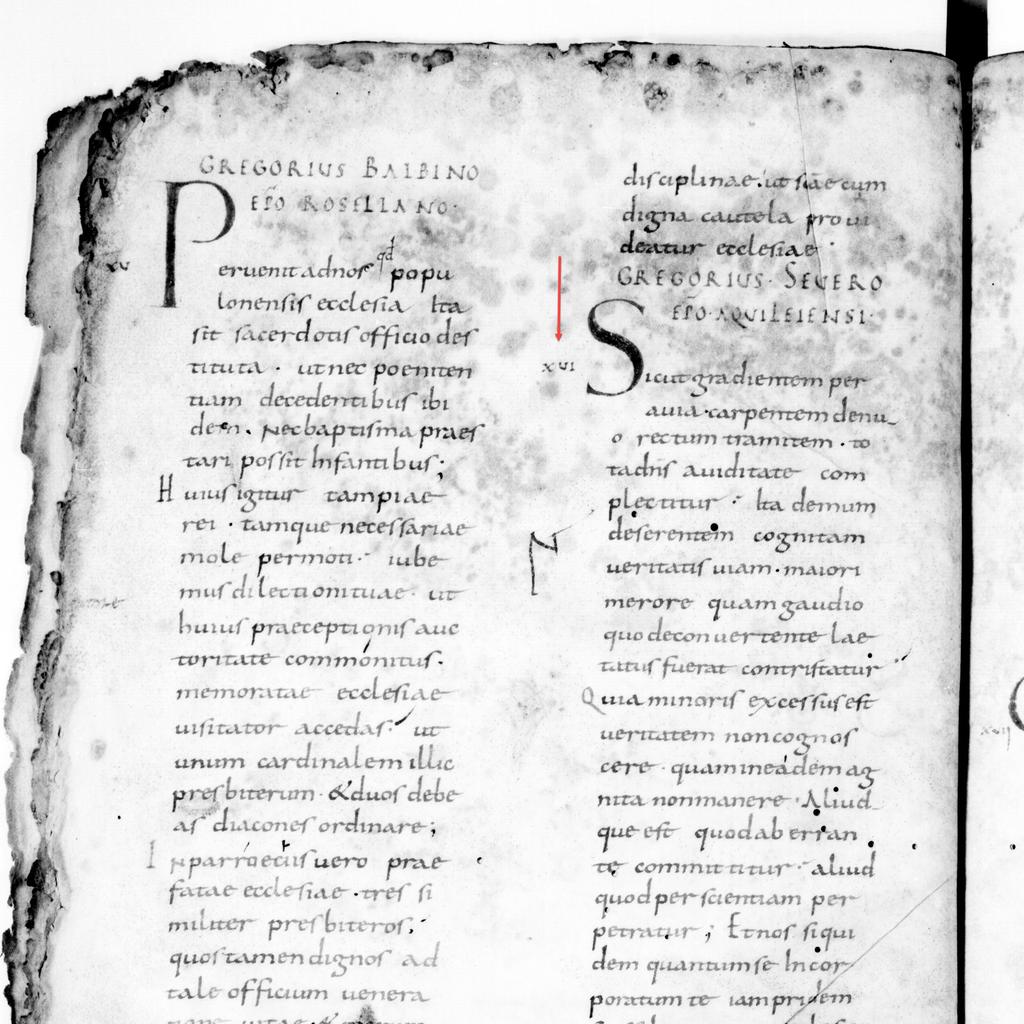 GREGORIUS BALBINO
EPO ROSELLANO·
XV
Peruenit ad nos qd popu
lonensis ecclesia Ita
sit sacerdotis officio des
tituta · ut nec poeniten
tiam decedentibus ibi
dem. Nec baptisma praes
tari possit Infantibus;
Huius igitur tam piae
rei · tamque necessariae
mole permoti· iube
mus dilectioni tuae· ut
huius praeceptionis auc
toritate commonitus·
memoratae ecclesiae
uisitator accedas· ut
unum cardinalem illic
presbiterum · & duos debe
as diacones ordinare;
IN parroeciis uero prae
fatae ecclesiae · tres si
militer presbiteros;
quos tamen dignos ad
tale officium uenera
tione uitae &
disciplinae· ut scae cum
digna cautela proui
deatur ecclesiae·
GREGORIUS· SEUERO
EPO· AQUILEIENSI·
XVI
Sicut gradientem per
auia· carpentem denu
o rectum tramitem · to
tadns auiditate com
plectitur · Ita demum
deserentem cognitam
ueritatis uiam· maiori
merore quam gaudio
quo de conuertente lae
tatus fuerat contristatur
Quia minoris excessus est
ueritatem non cognos
cere· quam in eadem ag
nita non manere· Aliud
que est quod ab erran
te committitur· aliud
quod per scientiam per
petratur; Et nos siqui
dem quantum se Incor
poratum te iam pridem
N